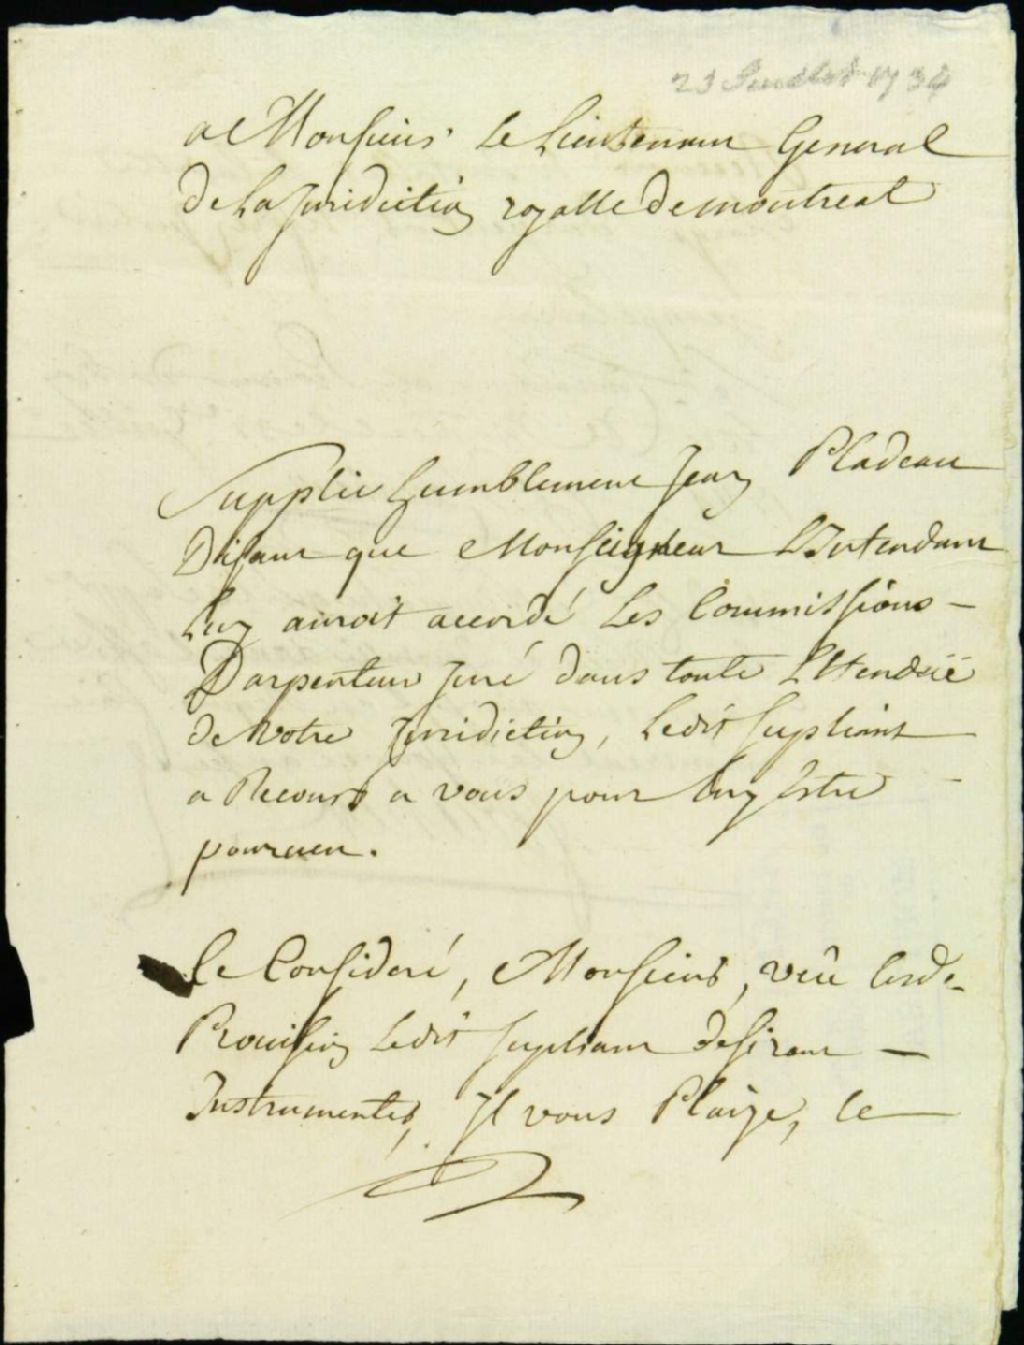 23 Juillet 1734
a Monsieur Le Lieutenant General
De La Juridiction royalle de montreal
Supplie humblement Jean Pladeau
Disant que Monseigneur L'Intendant
Luy auroit accordé Les Commissions –
D'arpenteur Juré dans toute L'Etendüe
de Votre Juridiction, Ledit Supliant
a Recours a vous pour luy Estre –
pourveu.
Ce Consideré, Monsieur, veü les de-
Provision Ledit Supliant desirant –
Instrumenter, Il vous Plaise, le